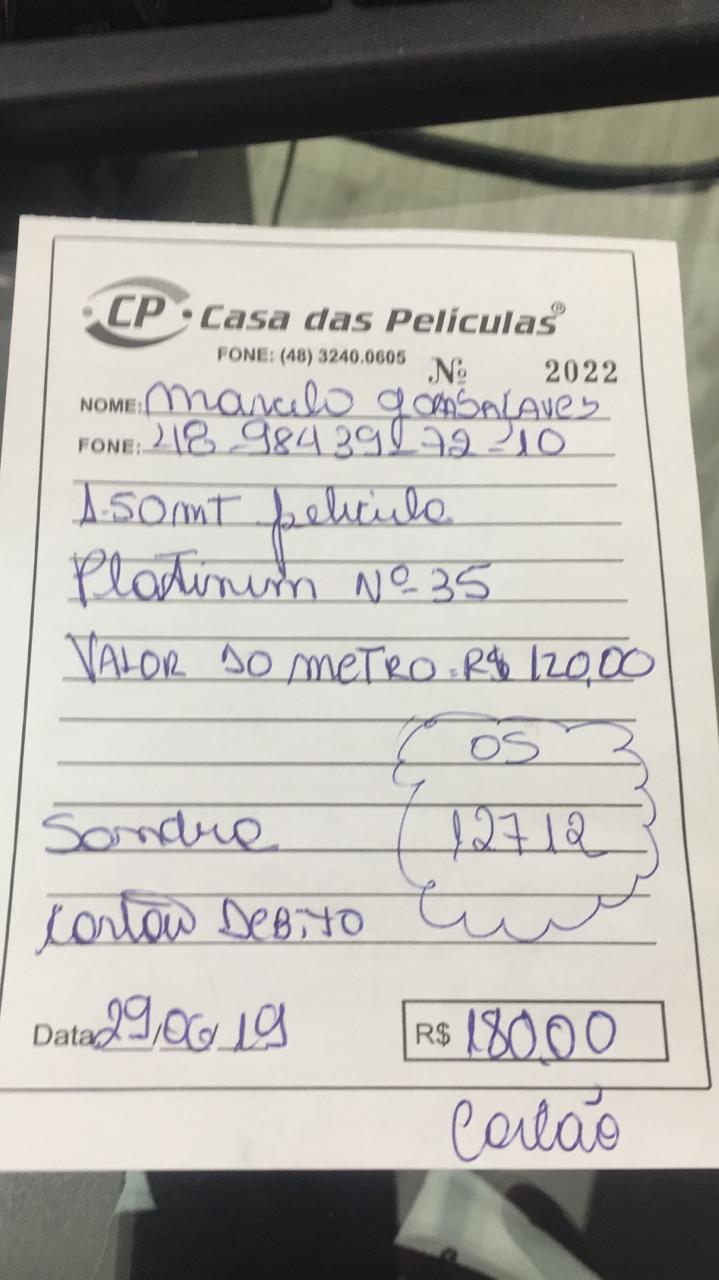 CP Casa das Películas®
FONE: (48) 3240.0605
Nº 2022
NOME: Marcelo gonsalaves
FONE: 48-98439172-10
1.50mt pelicula
Platinum Nº 35
VALOR DO METRO. R$ 120,00
OS
Sandra 12712
Cartão DEBITO
Data 29/06/19 R$ 180,00
Cartão